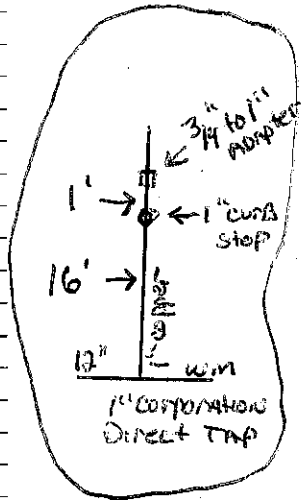 3/4" to 1"
ADAPTER
1'
1" CURB
STOP
16'
1" copper
12" W.M
1" CORPORATION
DIRECT TAP